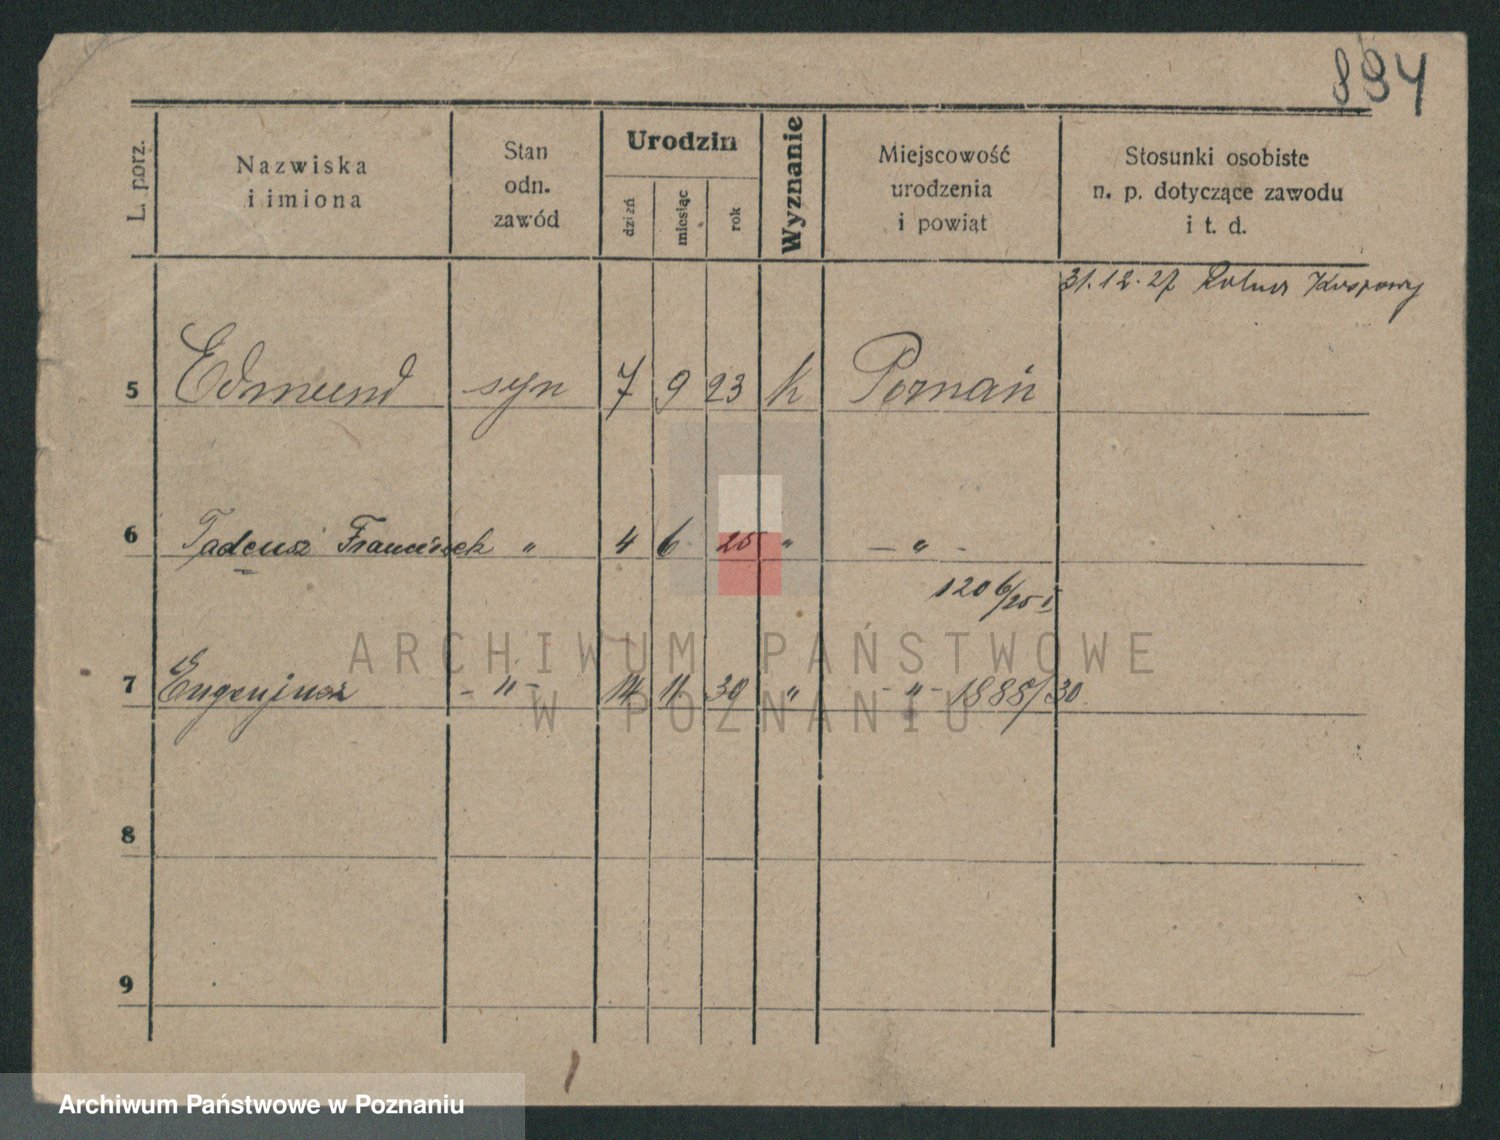 894
L. porz.
Nazwiska
i imiona
Stan
odn.
zawód
Urodzin
dzień
miesiąc
rok
Wyznanie
Miejscowość
urodzenia
i powiąt
Stosunki osobiste
n. p. dotyczące zawodu
i t. d.
31.12.27
5 Edmund syn 7 9 23 k Poznań
6 Tadeusz Franciszek " 4 6 25 " — " -
120 6/25 I
7 Eugenjusz - " - 14 11 30 " - " - 1888/30
8
9
ARCHIWUM PAŃSTWOWE
W POZNANIU
Archiwum Państwowe w Poznaniu